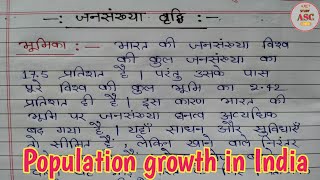 —: जनसंख्या वृद्धि :—
ASC
भूमिका :— भारत की जनसंख्या विश्व
की कुल जनसंख्या का
17.5 प्रतिशत है। परंतु उसके पास
पूरे विश्व की कुल भूमि का 2.42
प्रतिशत ही है। इस कारण भारत की
भूमि पर जनसंख्या घनत्व अत्यधिक
बढ़ गया है। यहाँ साधन और सुविधाएँ
तो सीमित हैं, लेकिन खाने वाले निरंतर
Population growth in India